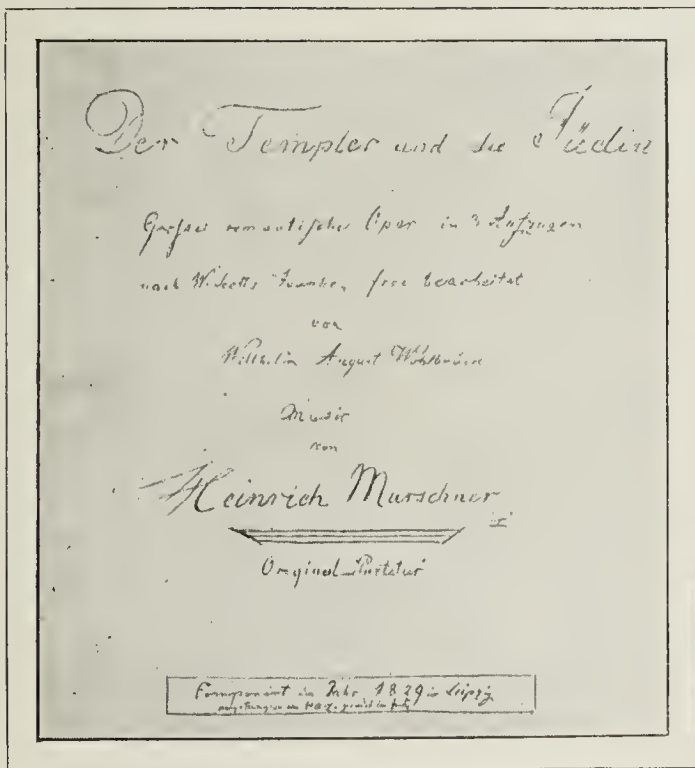 Der Templer und die Jüdin
Grosse romantische Oper in 3 Aufzügen
nach W. Scotts Ivanhoe, frei bearbeitet
von
Wilhelm August Wohlbrück
Music
von
Heinrich Marschner
Original-Partitur
Componirt im Jahr 1829 in Leipzig